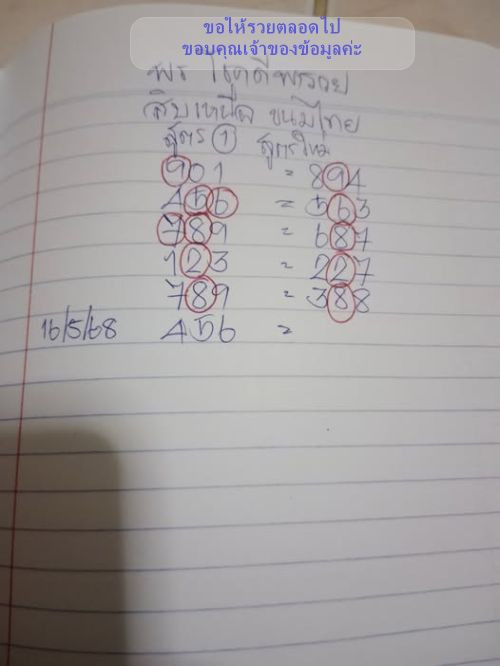 ขอให้รวยตลอดไป
ขอบคุณเจ้าของข้อมูลค่ะ
พร โชคดีพรวย
สิบเหนือ ขนมไทย
สูตร 1 สูตรใหม
901 = 894
456 = 563
789 = 687
123 = 227
789 = 388
16/5/68 456 =